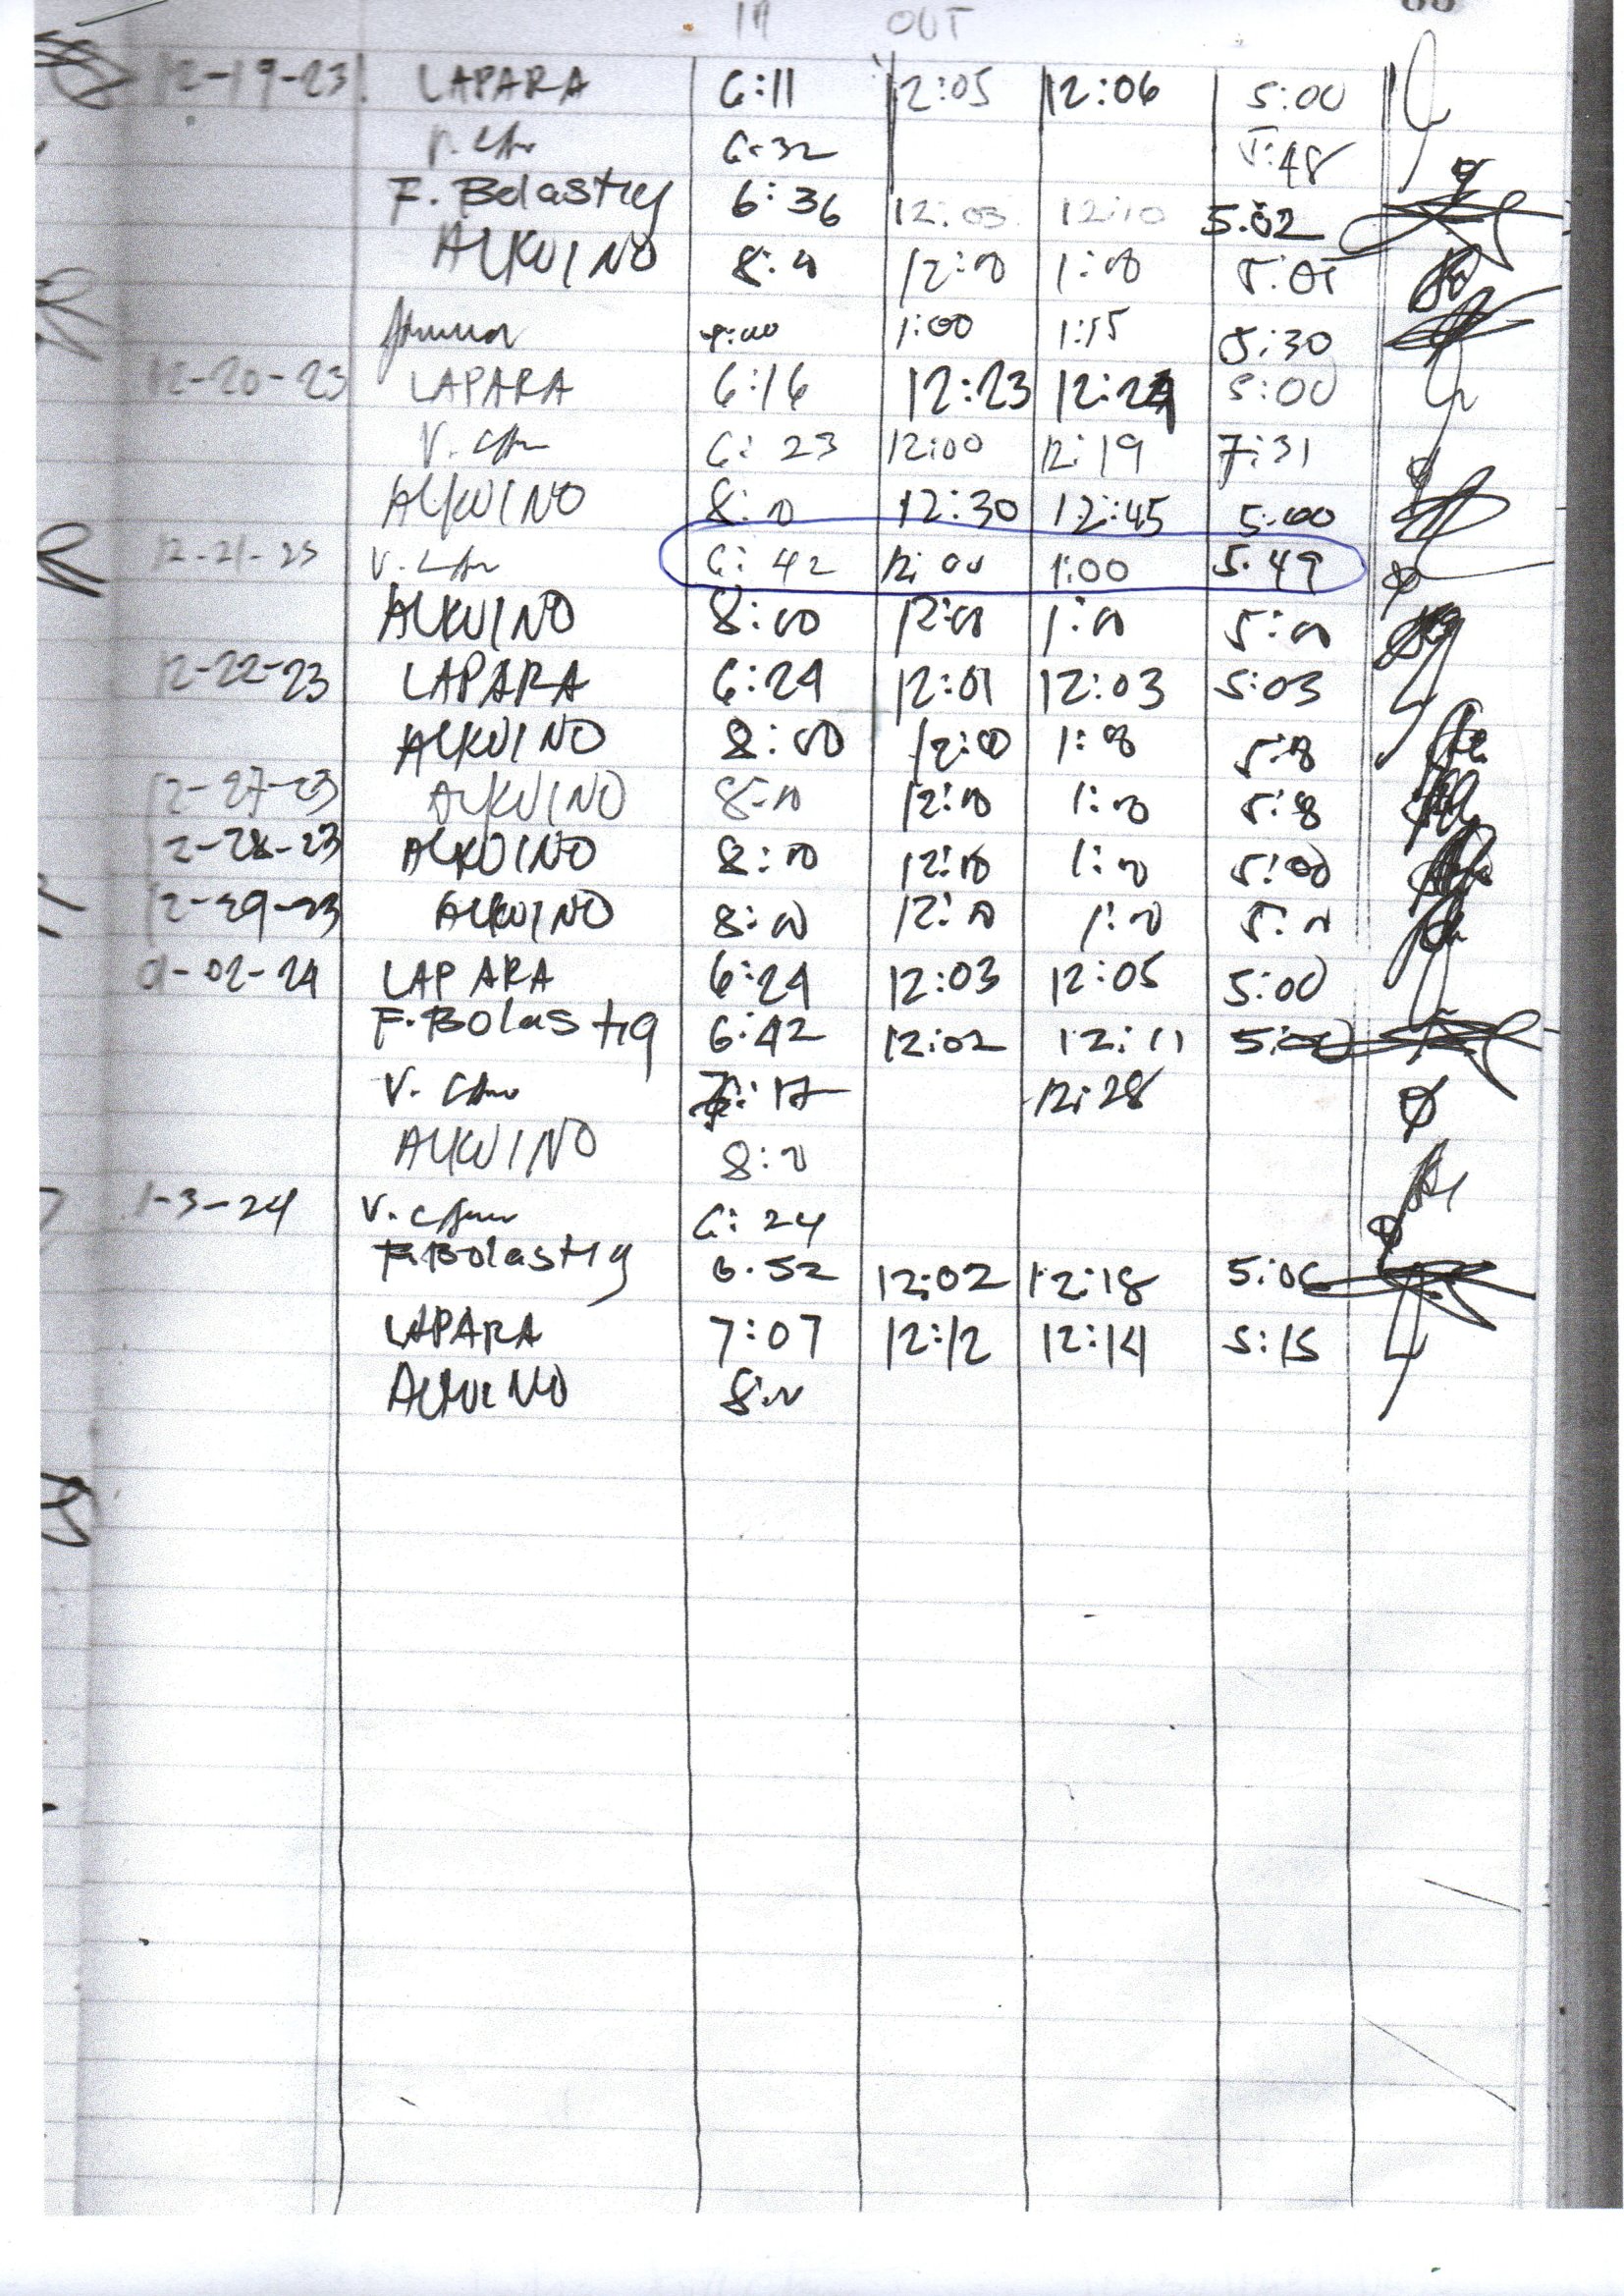 IN OUT
12-19-23 LAPARA 6:11 12:05 12:06 5:00
6:32 5:48
F. Bolastig 6:36 12:03 12:10 5:02
ALKUINO 8:00 12:00 1:00 5:05
1:00 1:15 5:30
12-20-23 LAPARA 6:16 12:23 12:24 5:00
V. 6:23 12:00 12:19 7:31
ALKUINO 8:00 12:30 12:45 5:00
12-21-23 V. 6:42 12:00 1:00 5:49
ALKUINO 8:00 12:00 1:00 5:00
12-22-23 LAPARA 6:24 12:01 12:03 5:03
ALKUINO 8:00 12:00 1:00 5:00
12-27-23 ALKUINO 8:00 12:00 1:00 5:00
12-28-23 ALKUINO 8:00 12:00 1:00 5:00
12-29-23 ALKUINO 8:00 12:00 1:00 5:00
01-02-24 LAPARA 6:24 12:03 12:05 5:00
F. Bolastig 6:42 12:02 12:11 5:00
V. 12:28
ALKUINO 8:00
1-3-24 V. 6:24
F. Bolastig 6:52 12:02 12:18 5:06
LAPARA 7:07 12:12 12:14 5:15
ALKUINO 8:00